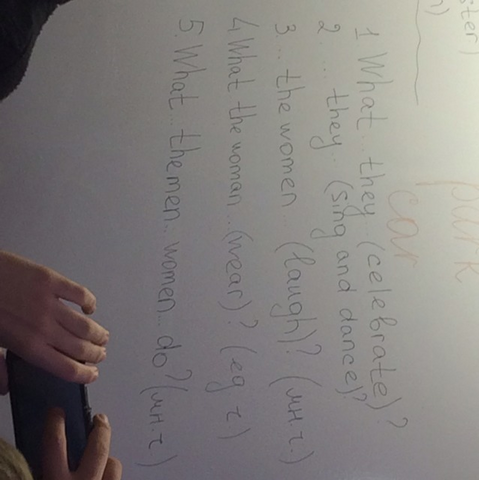 ster)
n)
park
car
1 What .. they (celebrate)?
2 .... they.. (sing and dance)?
3 ... the women... (laugh)? (мн.ч.)
4 What the woman... (wear)? (ед ч)
5. What... the men.. women... do? (мн.ч)